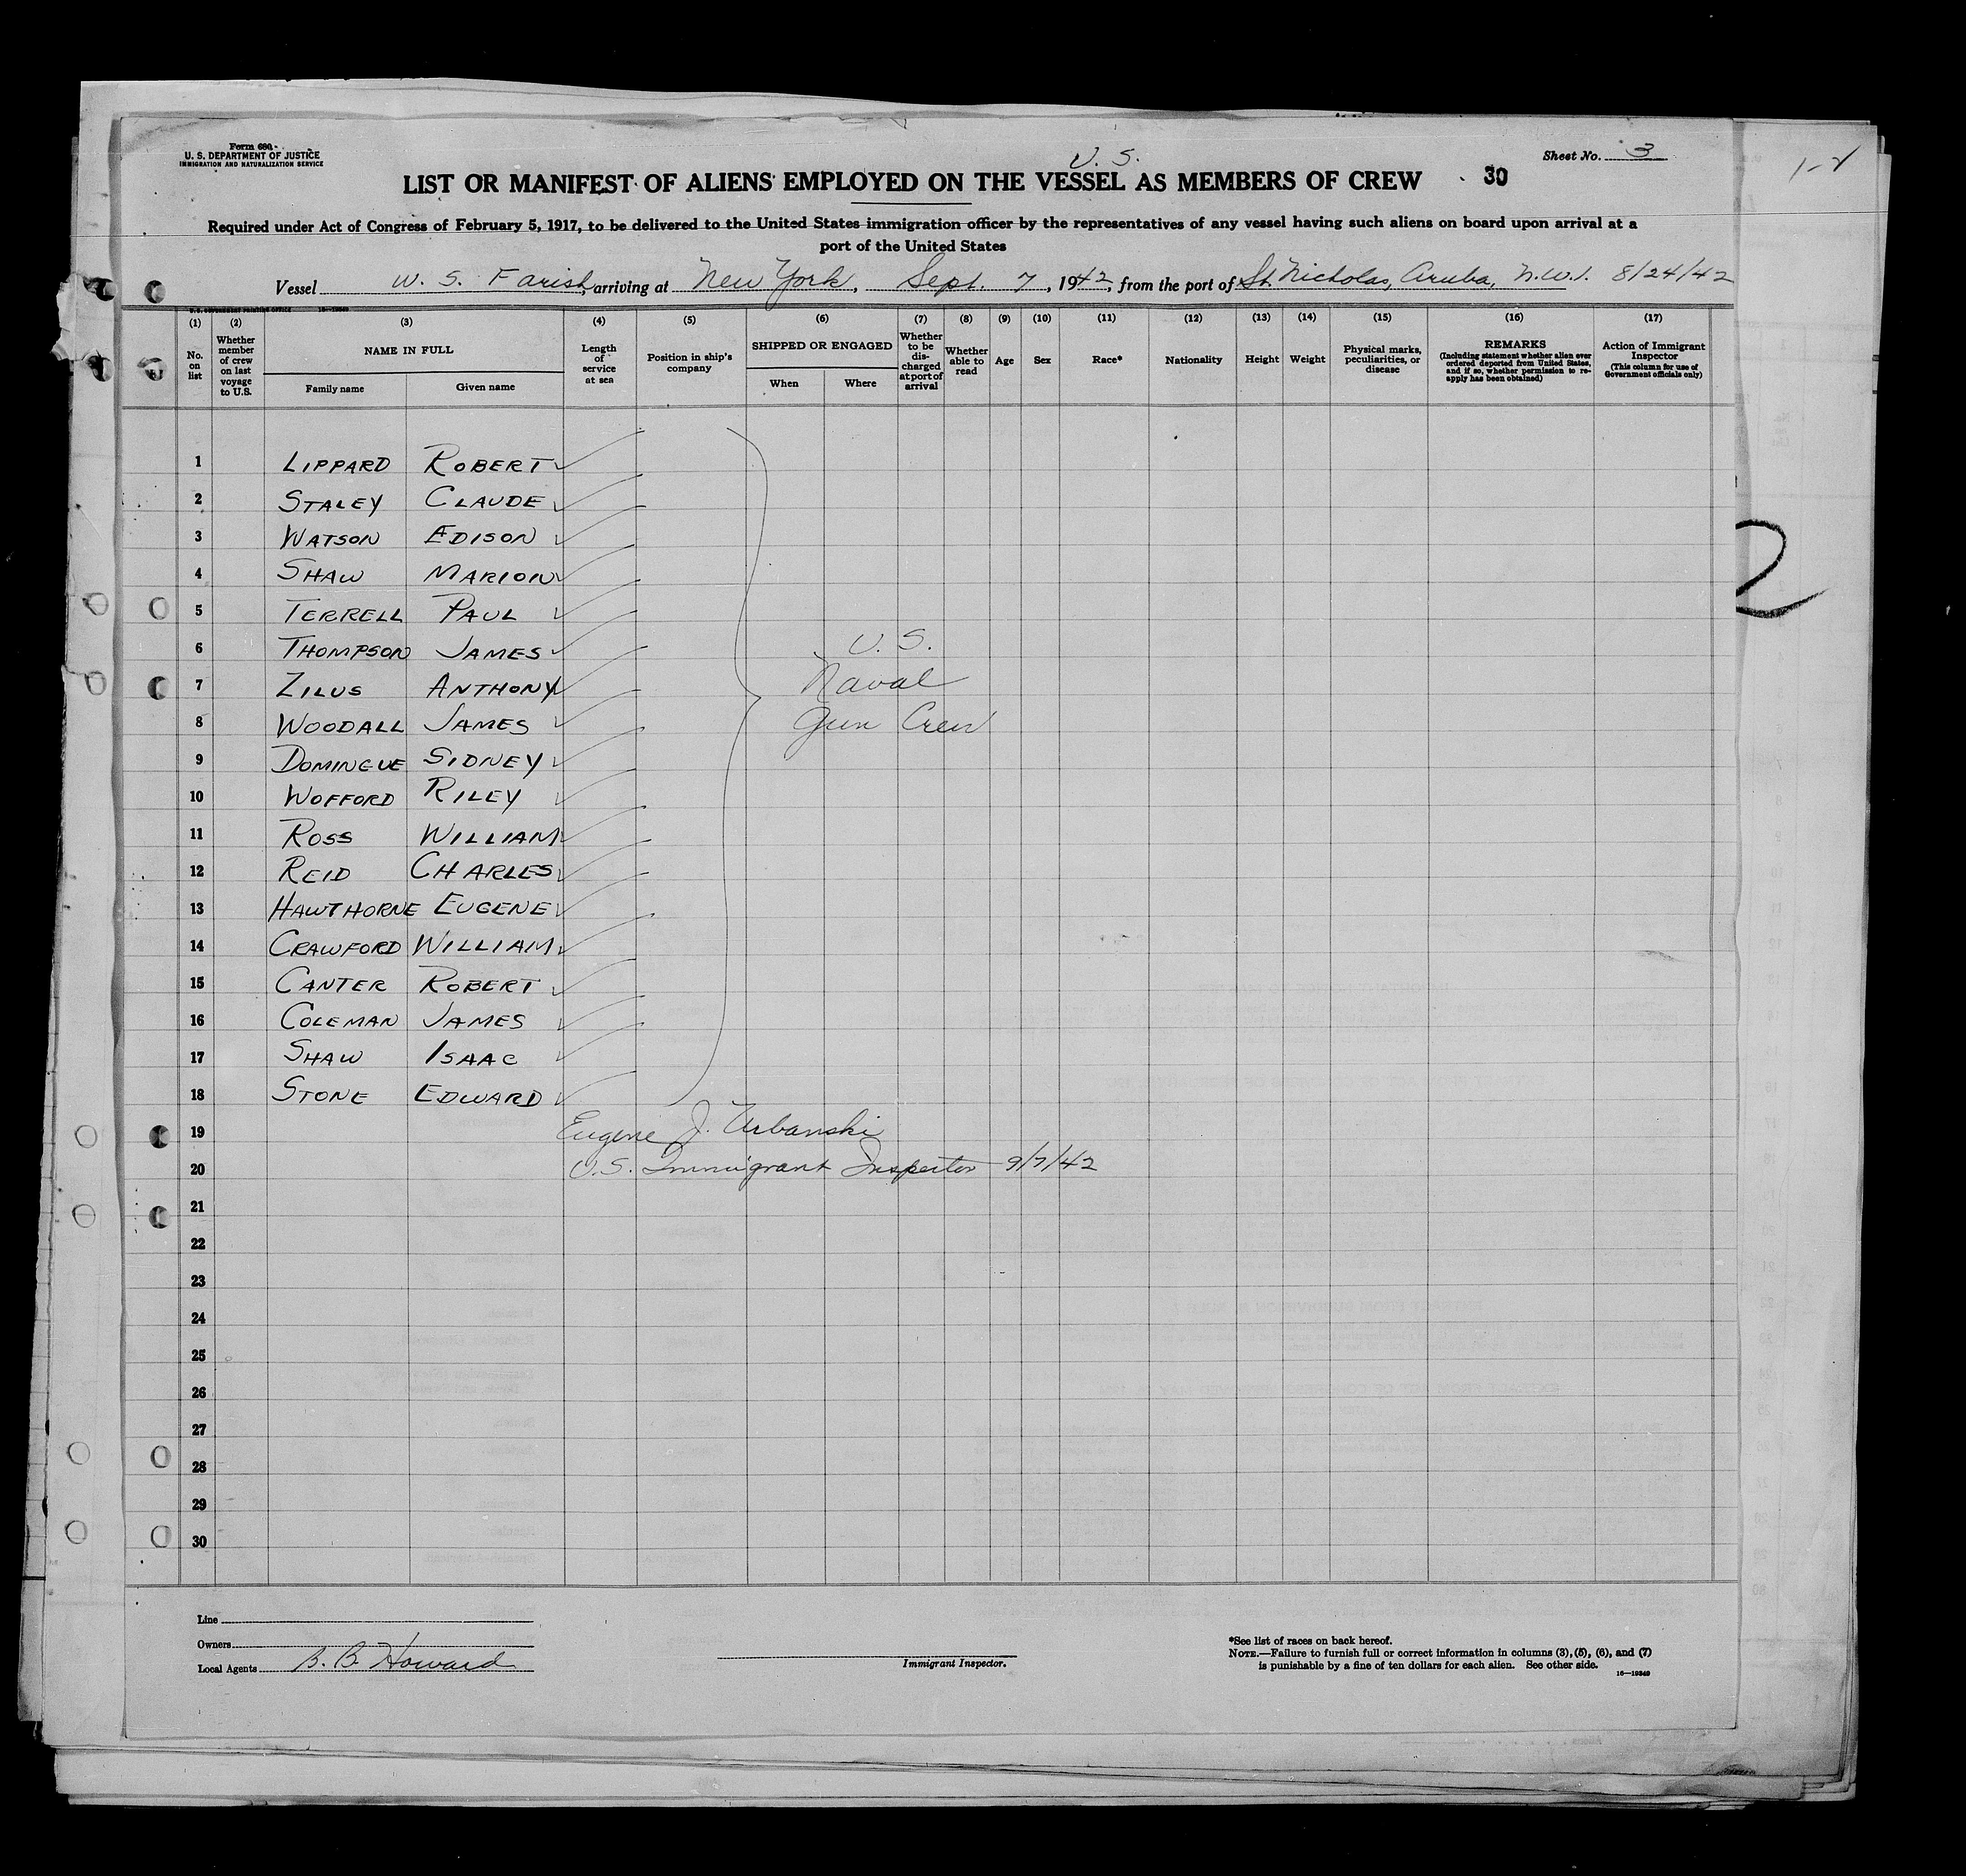 Form 680
U. S. DEPARTMENT OF JUSTICE
IMMIGRATION AND NATURALIZATION SERVICE
Sheet No. 3
U. S.
LIST OR MANIFEST OF ALIENS EMPLOYED ON THE VESSEL AS MEMBERS OF CREW 30
Required under Act of Congress of February 5, 1917, to be delivered to the United States immigration officer by the representatives of any vessel having such aliens on board upon arrival at a
port of the United States
Vessel W. S. Farish, arriving at New York, Sept. 7, 1942, from the port of St. Nicholas, Aruba, N.W.I. 8/24/42
(1) (2) (3) (4) (5) (6) (7) (8) (9) (10) (11) (12) (13) (14) (15) (16) (17)
No. on list
Whether member of crew on last voyage to U.S.
NAME IN FULL
Family name Given name
Length of service at sea
Position in ship's company
SHIPPED OR ENGAGED
When Where
Whether to be discharged at port of arrival
Whether able to read
Age
Sex
Race*
Nationality
Height
Weight
Physical marks, peculiarities, or disease
REMARKS
(Including statement whether alien ever ordered deported from United States, and if so, whether permission to re-apply has been obtained)
Action of Immigrant Inspector
(This column for use of Government officials only)
1 LIPPARD ROBERT
2 STALEY CLAUDE
3 WATSON EDISON
4 SHAW MARION
5 TERRELL PAUL
6 THOMPSON JAMES U. S.
7 ZILUS ANTHONY Naval
8 WOODALL JAMES Gun Crew
9 DOMINGUE SIDNEY
10 WOFFORD RILEY
11 ROSS WILLIAM
12 REID CHARLES
13 HAWTHORNE EUGENE
14 CRAWFORD WILLIAM
15 CANTER ROBERT
16 COLEMAN JAMES
17 SHAW ISAAC
18 STONE EDWARD
19 Eugene J. Urbanski
20 U.S. Immigrant Inspector 9/7/42
21
22
23
24
25
26
27
28
29
30
Line
Owners
Local Agents B. B. Howard
Immigrant Inspector.
*See list of races on back hereof.
NOTE.—Failure to furnish full or correct information in columns (3), (5), (6), and (7)
is punishable by a fine of ten dollars for each alien. See other side.
16—19349
2